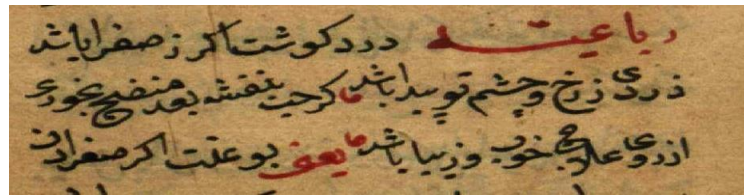 رباعیته درد گوشت اگر ز صفرا باشد
زردی ز رخ و چشم تو پیدا باشد ما کر حب بنفشه بعد منضج بخوری
از روی علاج خوب و زیبا باشد ما یعنی بو علت اکر صفرادن